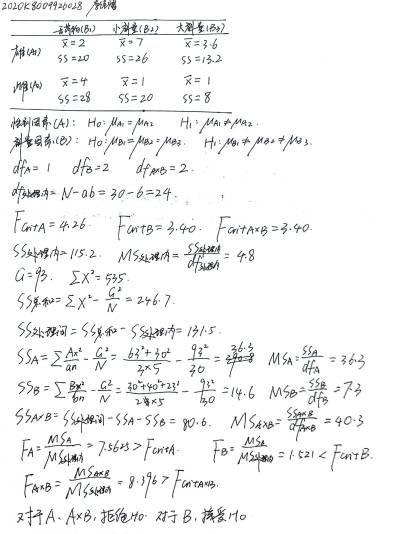 2020K8009926028
无药物(B₁) 小剂量(B₂) 大剂量(B₃)
雄(A₁) x̄=2 x̄=7 x̄=3.6
SS=20 SS=26 SS=13.2
雌(A₂) x̄=4 x̄=1 x̄=1
SS=28 SS=20 SS=8
性别因素(A): H₀: μA₁=μA₂ H₁: μA₁≠μA₂.
剂量因素(B): H₀: μB₁=μB₂=μB₃. H₁: μB₁≠μB₂≠μB₃.
dfA=1 dfB=2 dfA×B=2.
df处理内=N-ab=30-6=24.
FcritA=4.26. FcritB=3.40. FcritA×B=3.40.
SS处理内=115.2. MS处理内=SS处理内/df处理内=4.8
G=93. ΣX²=535.
SS总和=ΣX²-G²/N=246.7.
SS处理间=SS总和-SS处理内=131.5.
SSA=ΣAx²/an-G²/N=63²+30²/3×5-93²/30=36.3 MSA=SSA/dfA=36.3
SSB=ΣBx²/bn-G²/N=30²+40²+23²/2×5-93²/30=14.6 MSB=SSB/dfB=7.3
SSA×B=SS处理间-SSA-SSB=80.6. MSA×B=SSA×B/dfA×B=40.3
FA=MSA/MS处理内=7.5625>FcritA. FB=MSA/MS处理内=1.521<FcritB.
FA×B=MSA×B/MS处理内=8.396>FcritA×B.
对于A、A×B, 拒绝H₀. 对于B, 接受H₀